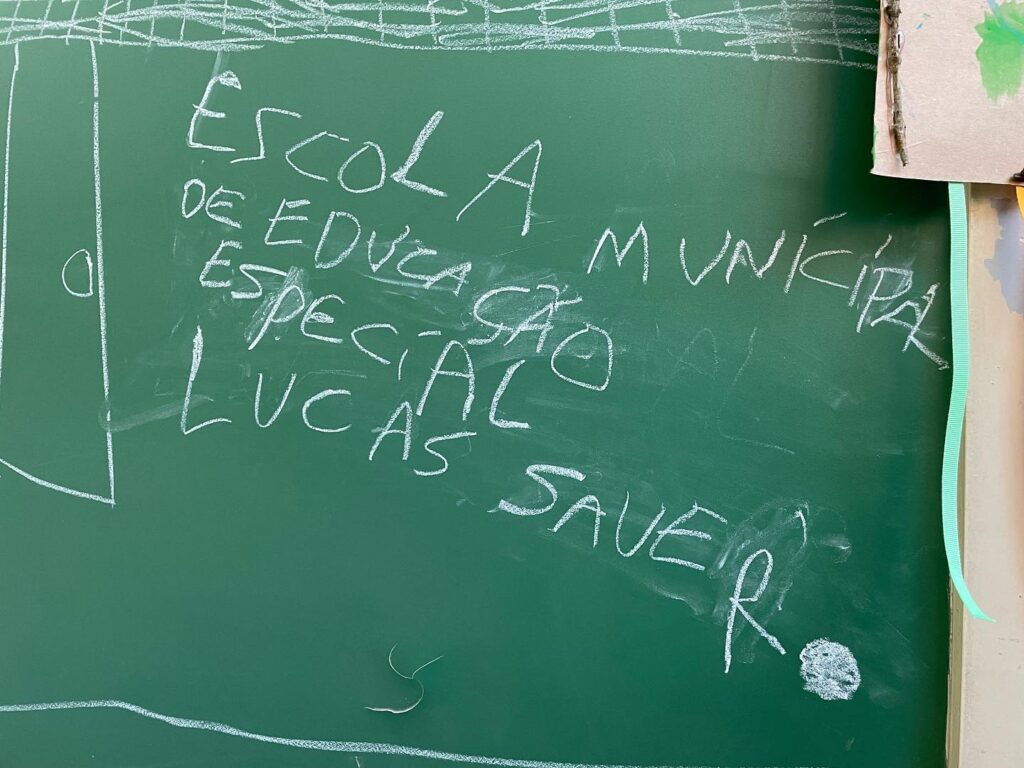 ESCOLA MUNICIPAL
DE EDUCAÇÃO
ESPECIAL
LUCAS SAUER.